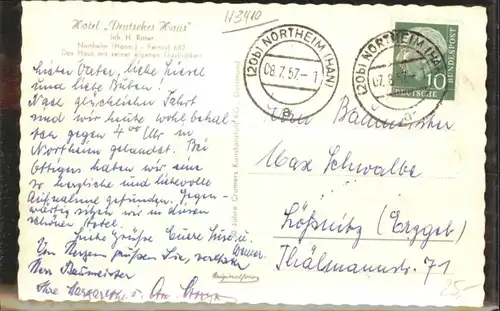 H3410
Hotel „Deutsches Haus“
Joh. H. Ritter
Northeim (Hann.) - Fernruf 682
Das Haus mit seiner eigenen Gastlichkeit
Lieber Vater, liebe Liesel
und liebe Buben!
Nach glücklicher Fahrt
sind wir heute wohl behal-
ten gegen 4 00 Uhr in
Northeim gelandet. Bei
haben wir eine
so herzliche und liebevolle
Aufnahme gefunden. Gegen-
wärtig sitzen wir in diesem
schönen Hotel.
Liebe Grüße Euere
Von Herzen grüßen Sie, verehrter
Herr Baumeister
Ihre Margarethe u.
(20b) NORTHEIM (HAN)
08.7.57.-1
a
(20b) NORTHEIM (HA
a
10
BUNDESPOST
DEUTSCHE
Herrn Baumeister
Max Schwalbe
Lößnitz (Erzgeb)
Thälmannstr. 71
Originalfoto
25,-